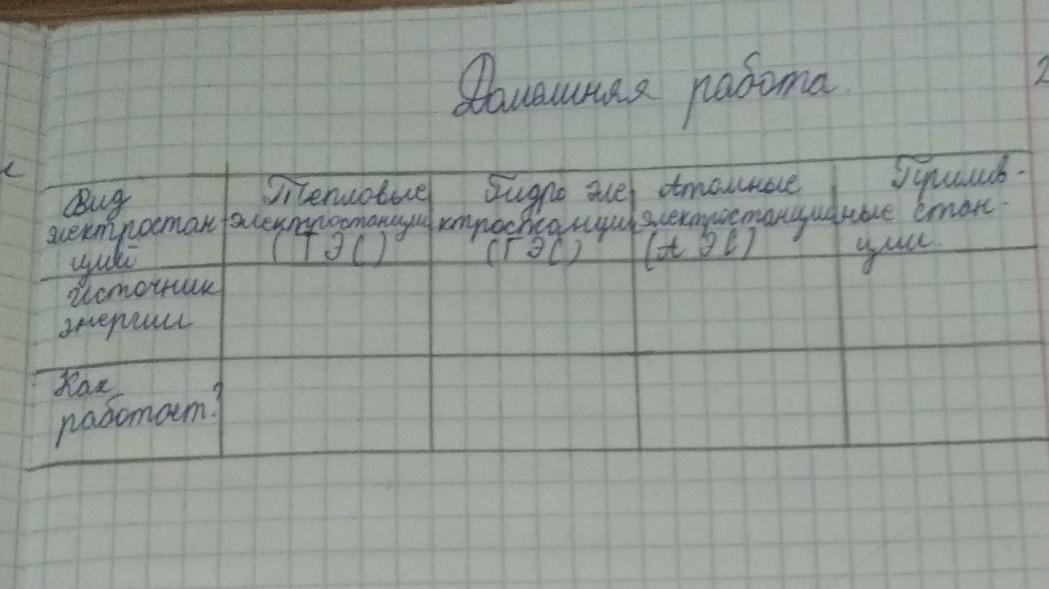 Домашняя работа.
Вид электростанций
Тепловые электростанции (ТЭС)
Гидро электростанции (ГЭС)
Атомные электростанции (АЭС)
Приливные станции.
Источник энергии
Как работает?